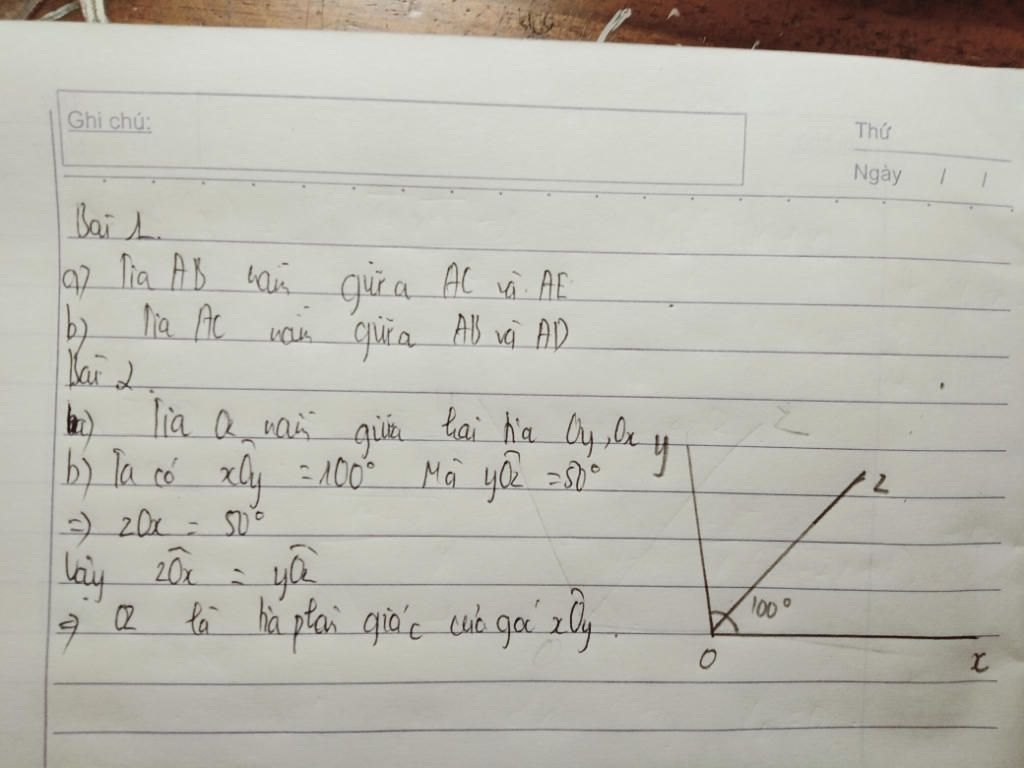 Ghi chú:
Thứ
Ngày / /
Bài 1.
a) Tia AB nằm giữa AC và AE
b) Tia AC nằm giữa AB và AD
Bài 2.
a) Tia Oz nằm giữa hai tia Oy, Ox
b) Ta có xÔy = 100° Mà yÔz = 50°
=> zOx = 50°
Vậy zÔx = yÔz
=> Oz là tia phân giác của góc xÔy.
y
z
100°
O
x